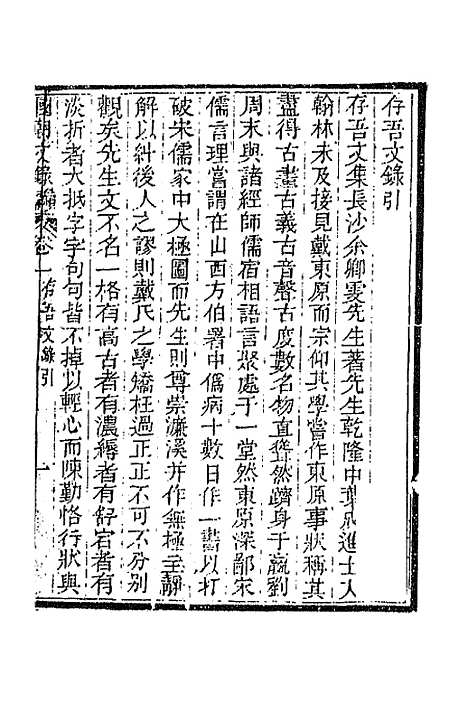 存吾文錄引
存吾文集長沙余卿雯先生著先生乾隆中葉成進士入
翰林未及接見戴東原而宗仰其學嘗作東原事狀稱其
盡得古畫古義古音聲古度數名物直聳然躋身于嬴劉
周末與諸經師儒宿相語言聚處于一堂然東原深鄙宋
儒言理嘗謂在山西方伯署中僞病十數日作一書以打
破宋儒家中大極圖而先生則尊崇濂溪并作無極至靜
解以糾後人之謬則戴氏之學矯枉過正正不可不分別
觀矣先生文不名一格有高古者有濃縟者有舒宕者有
淡折者大抵字字句句皆不掉以輕心而陳勤恪行狀與
國朝文錄續編 卷一 存吾文錄引 一